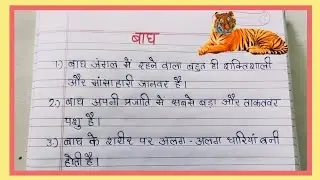 बाघ
1.) बाघ जंगल में रहने वाला बहुत ही शक्तिशाली
और मांसाहारी जानवर है।
2.) बाघ अपनी प्रजाति में सबसे बड़ा और ताकतवर
पशु है।
3.) बाघ के शरीर पर अलग-अलग धारियां बनी
होती है।